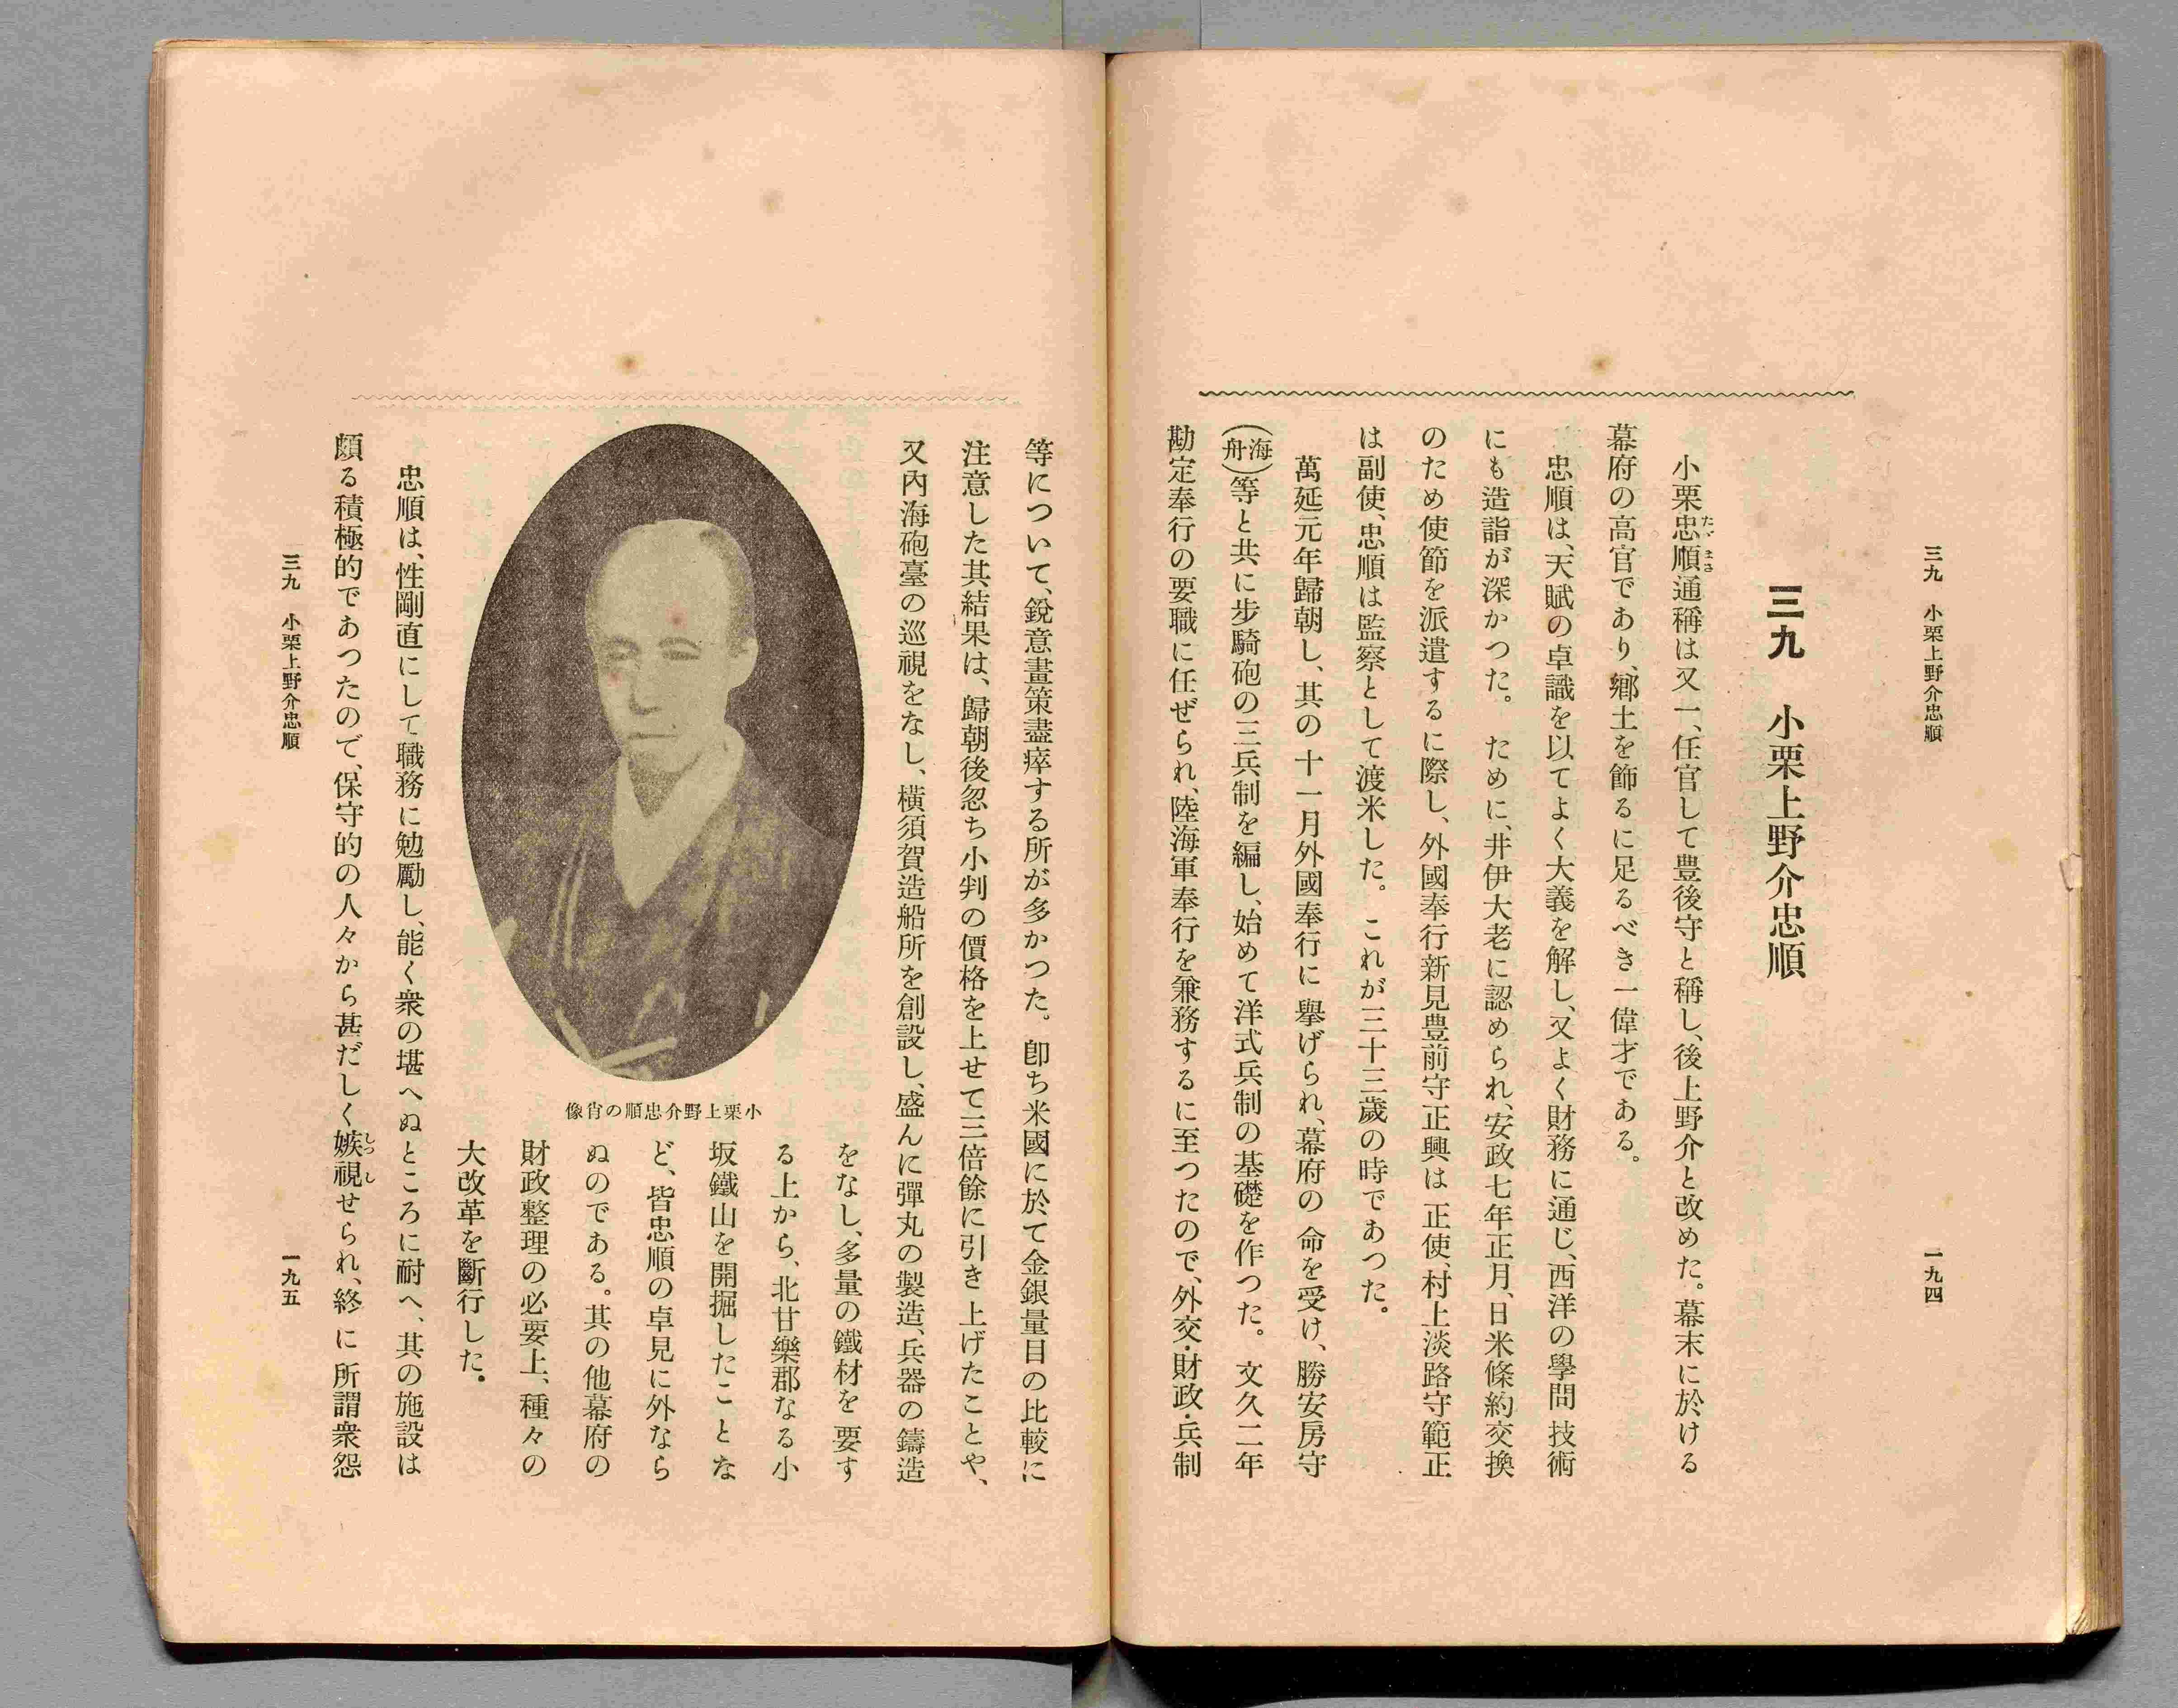 三九　小栗上野介忠順
一九四
三九　小栗上野介忠順
小栗忠順通稱は又一、任官して豊後守と稱し、後上野介と改めた。幕末に於ける
たゞまさ
幕府の高官であり、鄕土を飾るに足るべき一偉才である。
忠順は、天賦の卓識を以てよく大義を解し、又よく財務に通じ、西洋の學問技術
にも造詣が深かつた。ために、井伊大老に認められ、安政七年正月、日米條約交換
のため使節を派遣するに際し、外國奉行新見豊前守正興は正使、村上淡路守範正
は副使、忠順は監察として渡米した。これが三十三歲の時であつた。
萬延元年歸朝し、其の十一月外國奉行に擧げられ、幕府の命を受け、勝安房守
（海舟）等と共に步騎砲の三兵制を編し、始めて洋式兵制の基礎を作つた。文久二年
勘定奉行の要職に任ぜられ、陸海軍奉行を兼務するに至つたので、外交・財政・兵制
等について、銳意畫策盡瘁する所が多かつた。卽ち米國に於て金銀量目の比較に
注意した其結果は、歸朝後忽ち小判の價格を上せて三倍餘に引き上げたことや、
又內海砲臺の巡視をなし、橫須賀造船所を創設し、盛んに彈丸の製造、兵器の鑄造
をなし、多量の鐵材を要す
る上から、北甘樂郡なる小
坂鐵山を開掘したことな
ど、皆忠順の卓見に外なら
ぬのである。其の他幕府の
財政整理の必要上、種々の
大改革を斷行した。
小栗上野介忠順の肖像
忠順は、性剛直にして職務に勉勵し、能く衆の堪へぬところに耐へ、其の施設は
頗る積極的であつたので、保守的の人々から甚だしく嫉視せられ、終に所謂衆怨
しつし
三九　小栗上野介忠順
一九五